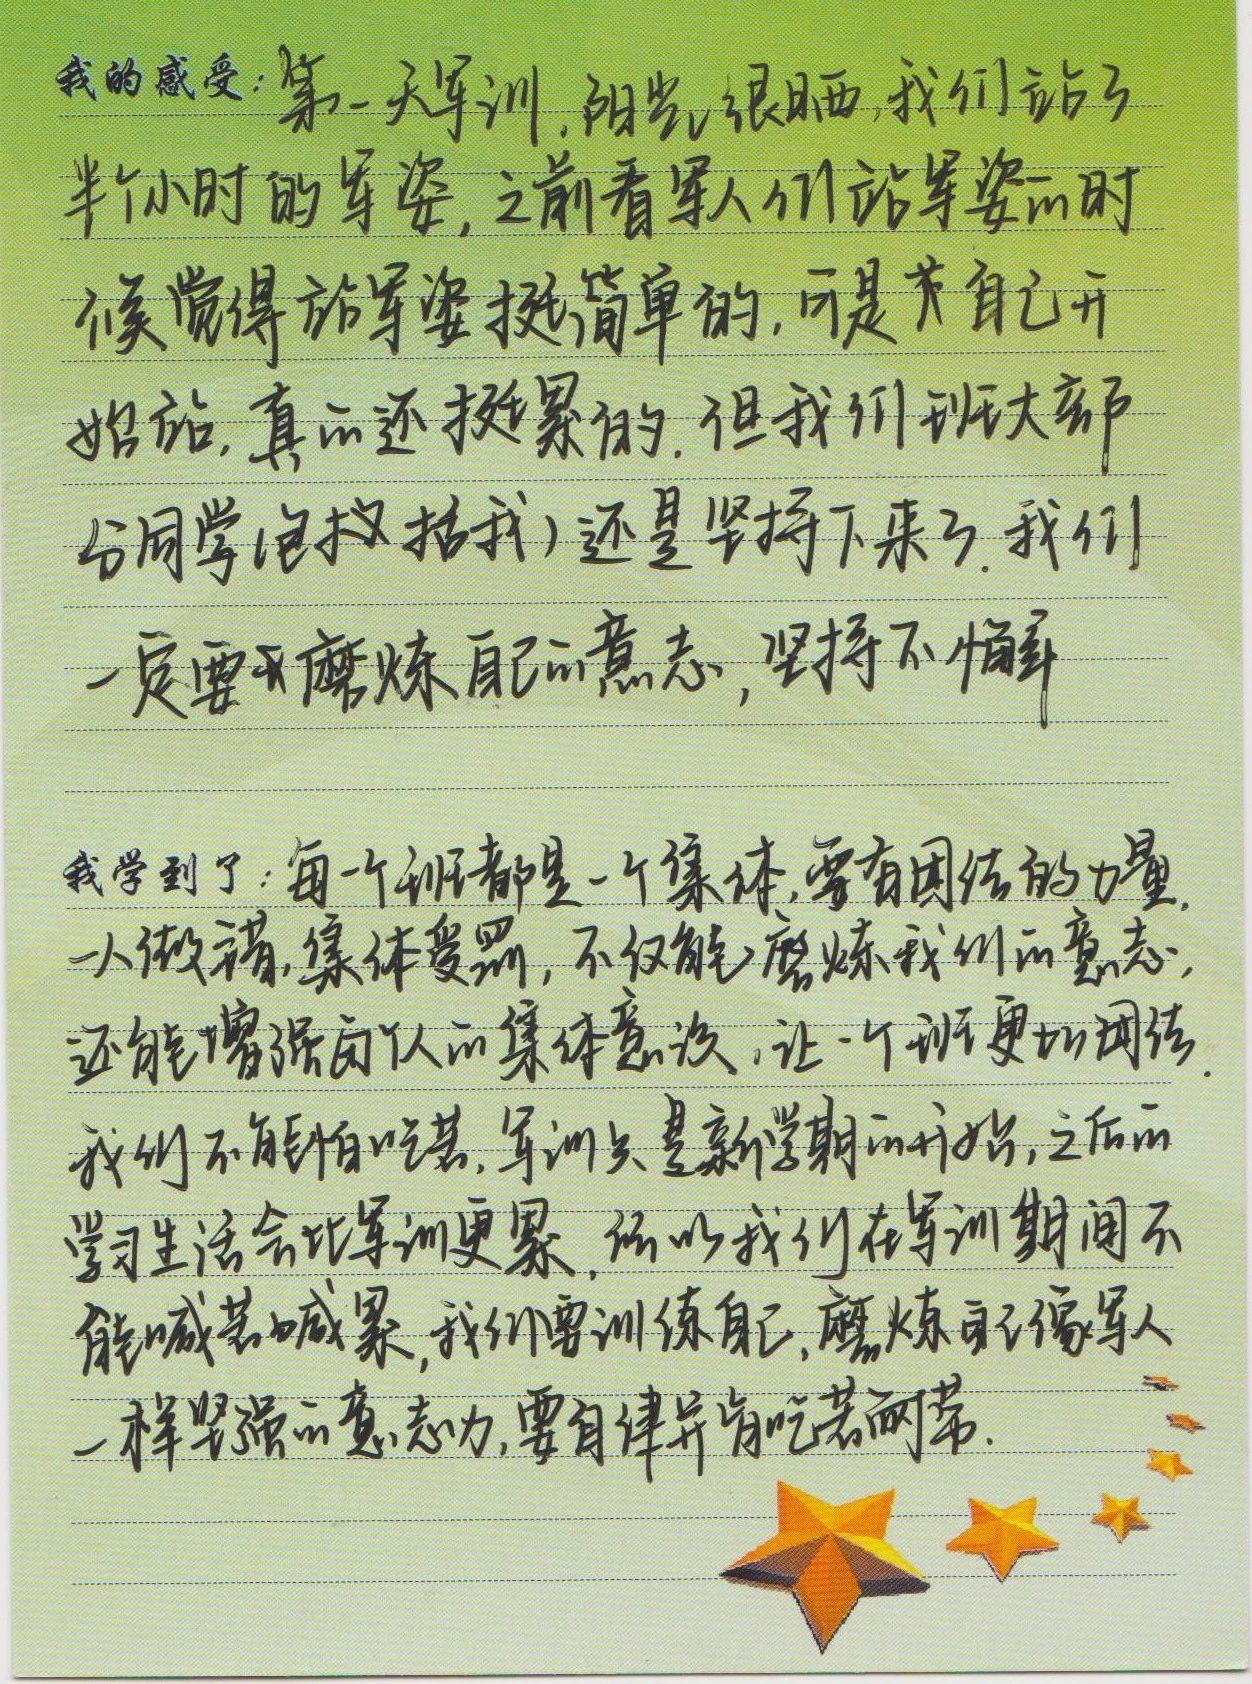 我的感受：第一天军训，阳光很晒，我们站了
半个小时的军姿，之前看军人们站军姿的时
候觉得站军姿挺简单的，可是当自己开
始站，真的还挺累的．但我们班大部
分同学（包括我）还是坚持下来了．我们
一定要磨炼自己的意志，坚持不懈
我学到了：每一个班都是一个集体，要有团结的力量．
一人做错，集体受罚，不仅能磨炼我们的意志，
还能增强每个人的集体意识，让一个班更加团结．
我们不能怕吃苦，军训只是新学期的开始，之后的
学习生活会比军训更累，所以我们在军训期间不
能喊苦喊累，我们要训练自己，磨炼自己像军人
一样坚强的意志力，要自律并肯吃苦耐劳．